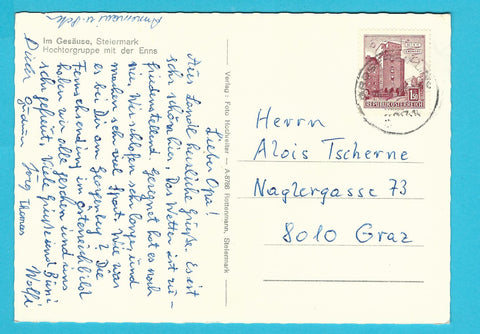 Im Gesäuse, Steiermark
Hochtorgruppe mit der Enns
Lieber Opa!
Aus Landl herzliche Grüße. Es ist
sehr schön hier. Das Wetter ist zu-
friedenstellend. Geregnet hat es noch
nie. Wir schlafen sehr lange, und
machen sehr viel Sport. Wie war
es bei Dir am Georgenberg? Die
Fernsehsendung im Österreichbild
haben wir alle gesehen und uns
sehr gefreut. Viele Grüße und Bussi
Wolfi
Dieter
Gudrun
Jörg
Thomas
Annemarie u.
Verlag: Foto Hochwimmer — A-8786 Rottenmann, Steiermark
REPUBLIK ÖSTERREICH
1.50
Herrn
Alois Tscherne
Naglergasse 73
8010 Graz